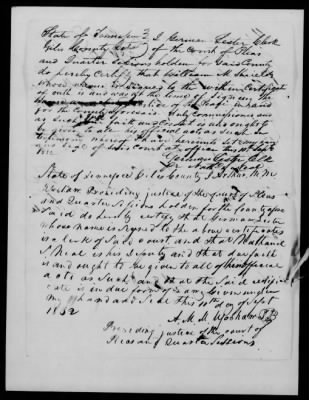 State of Tennessee I German Lester Clerk
Giles County of the Court of Pleas
and Quarter Sessions holden for Said County
do hereby Certify that William M
Whose name is Signed to the within Certificate
of oath is and was at the time of Signing
of the Peace in and
for the County aforesaid duly Commissioned and
as Such that faith and Credit is and ought to
be given to all his official acts as Such in
Testimony whereof I have hereunto Set my hand
and Seal of Said Court at office this
German Lester Clk
By
State of Tennessee Giles County I Arthur M M
Presiding justice of the Court of Pleas
and Quarter Sessions holden for the County afore
Said do hereby certify that German Lester
whose name is Signed to the above certificate
is a clerk of Said court and that Nathaniel
is his deputy and that due faith
is and ought to be given to all of his official
acts as Such and that the Said certifi
cate is in due form of law given under
my hand and Seal this 10th day of Sept
1832
A. M. M.
Presiding justice of the court of
Pleas and Quarter Sessions